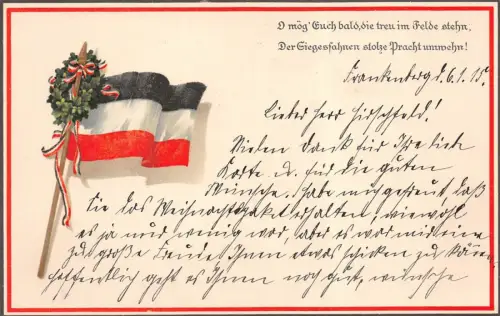 O mög' Euch bald, die treu im Felde stehn,
Der Siegesfahnen stolze Pracht umwehn!
Frankenberg d. 6.1.15.
Lieber Herr Hirschfeld!
Vielen Dank für Ihre liebe
Karte u. für die guten
Wünsche. Habe mich gefreut, daß
Sie das Weihnachtspaket erhalten! wiewohl
es ja nur wenig war, aber es war mir eine
zu große Freude Ihnen etwas schicken zu können
hoffentlich geht es Ihnen noch gut, wünsche